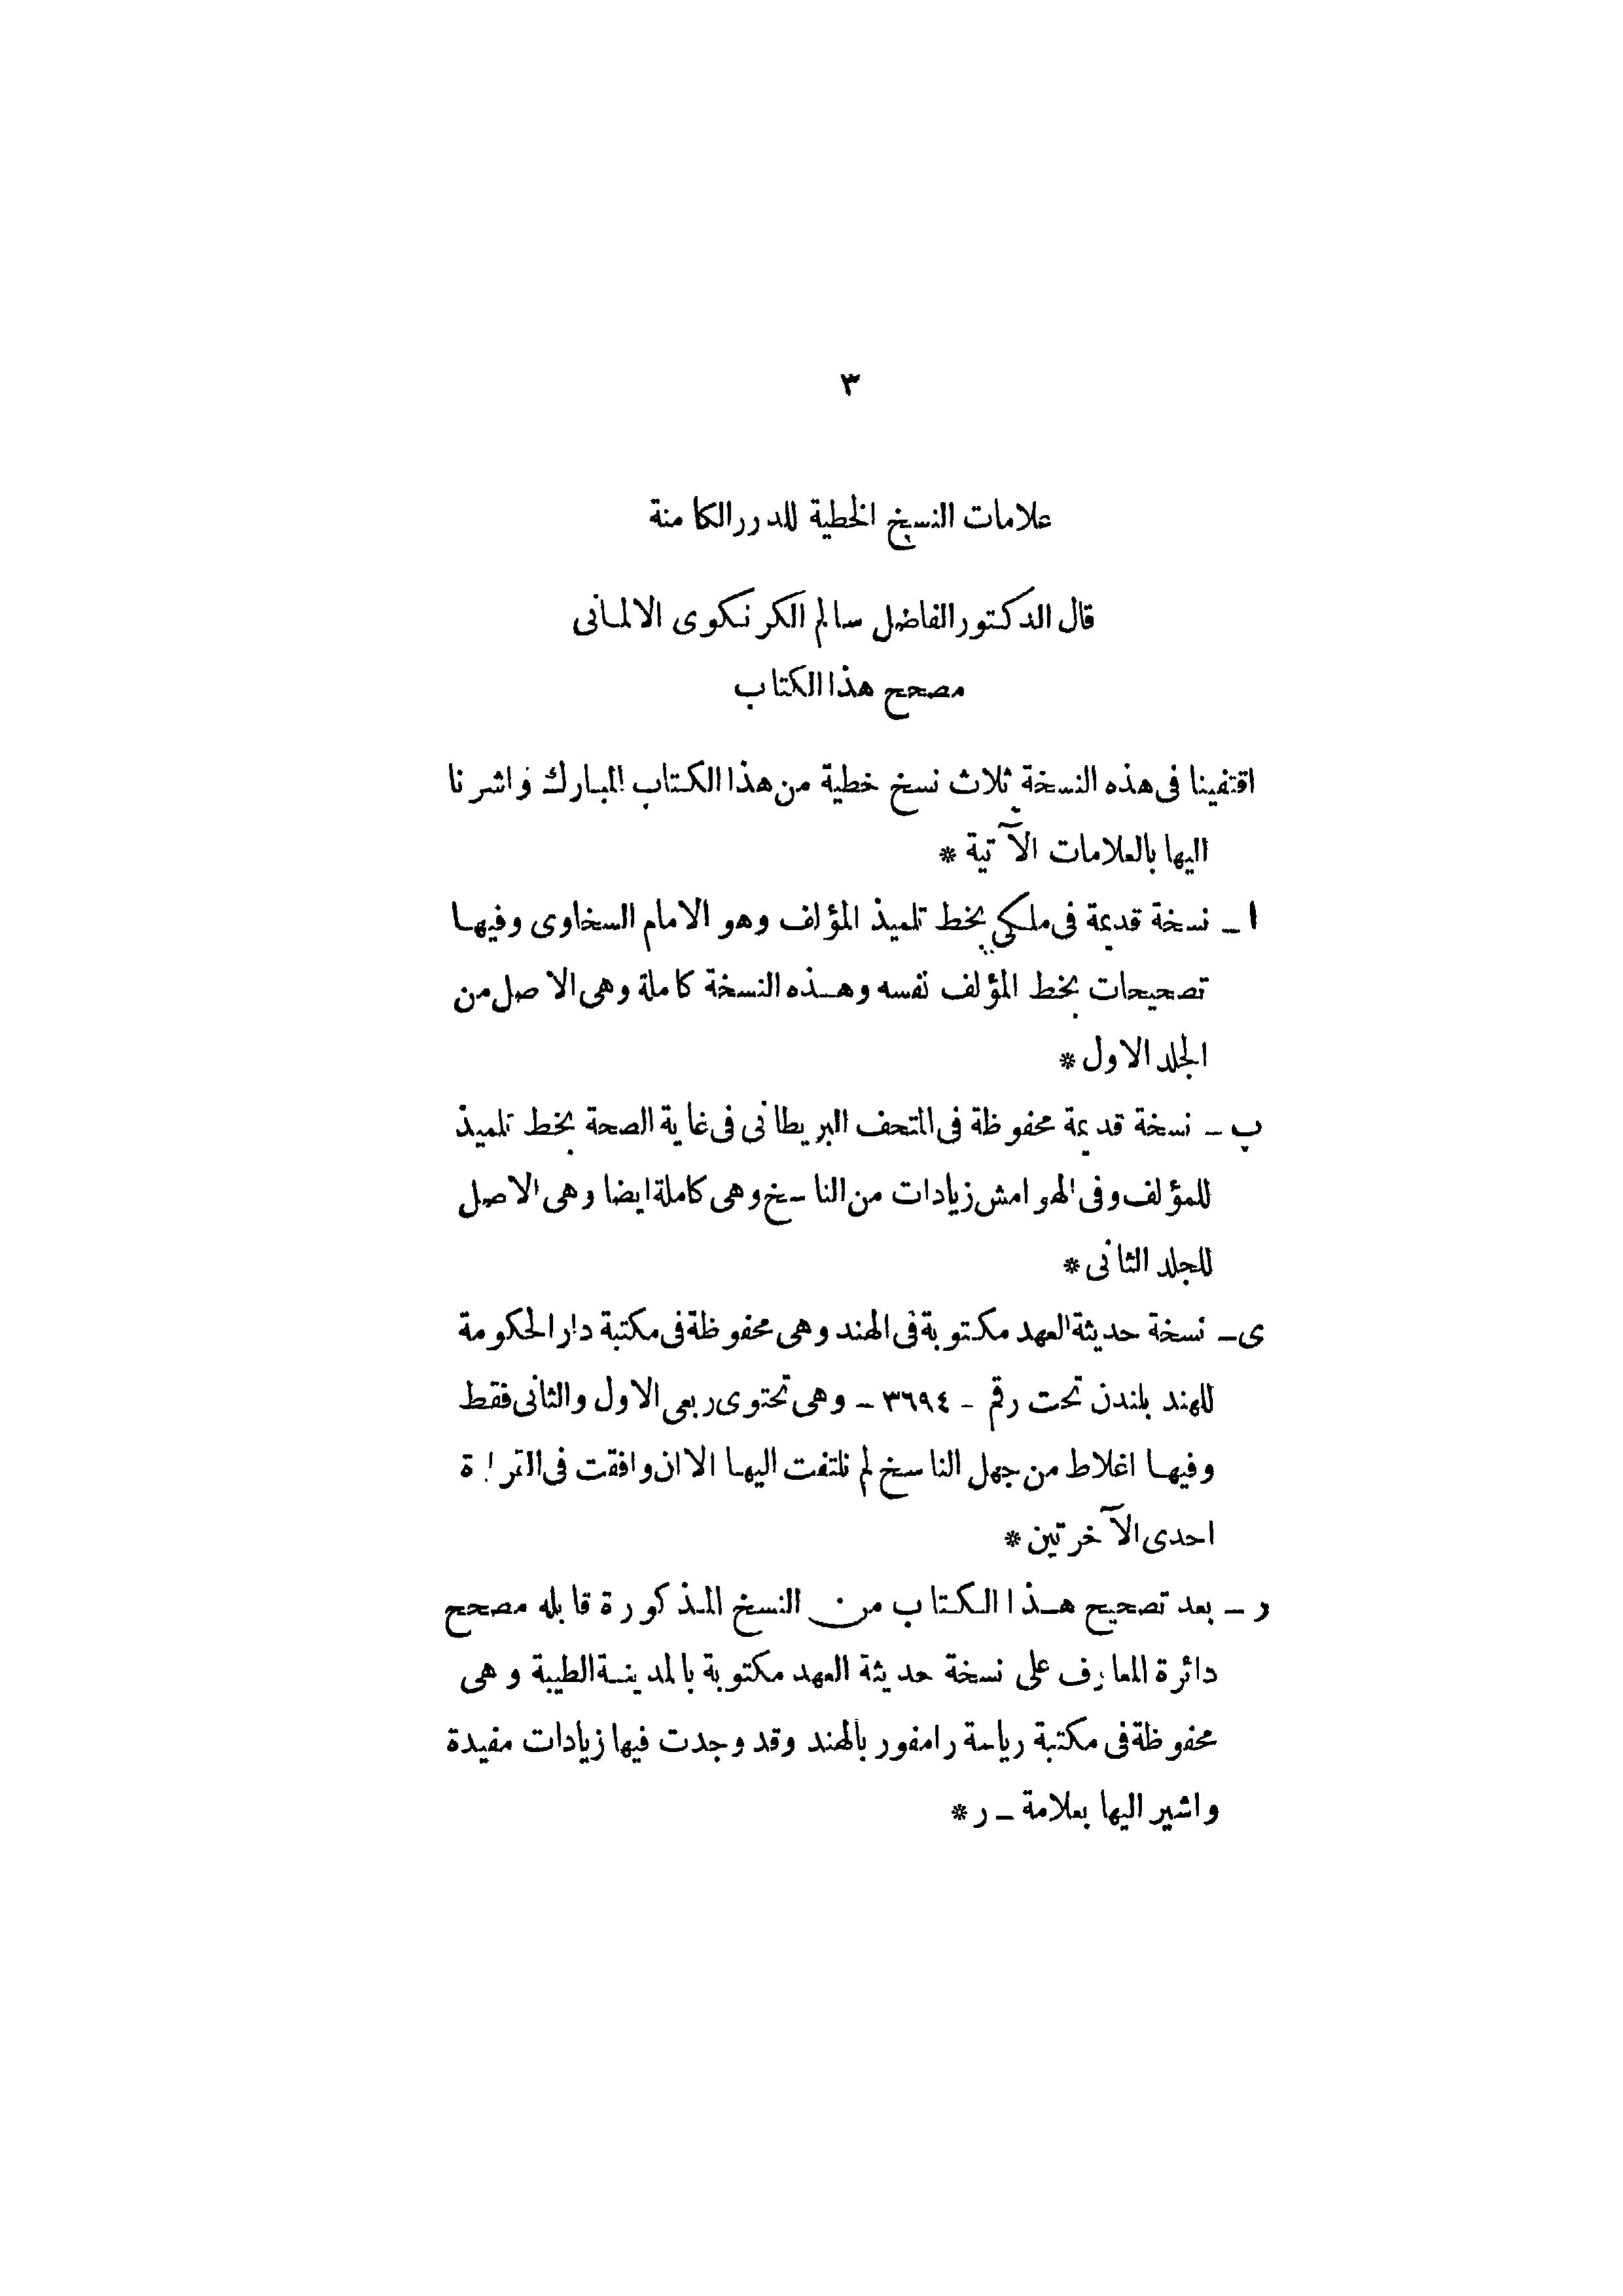 ٣
علامات النسخ الخطية للدرر الكامنة
قال الدكتور الفاضل سالم الكرنكوى الالمانى
مصحح هذا الكتاب
اقتفينا فى هذه النسخة ثلاث نسخ خطية من هذا الكتاب المبارك واشرنا
اليها بالعلامات الآتية *
ا ـ نسخة قديمة فى ملكى بخط تلميذ المؤلف وهو الامام السخاوى وفيها
تصحيحات بخط المؤلف نفسه وهذه النسخة كاملة وهى الاصل من
المجلد الاول *
ب ـ نسخة قديمة محفوظة فى المتحف البريطانى فى غاية الصحة بخط تلميذ
للمؤلف وفى الهوامش زيادات من الناسخ وهى كاملة ايضا وهى الاصل
للجلد الثانى *
ى ـ نسخة حديثة العهد مكتوبة فى الهند وهى محفوظة فى مكتبة دار الحكومة
للهند بلندن تحت رقم ـ ٣٦٩٤ ـ وهى تحتوى ربعى الاول والثانى فقط
وفيها اغلاط من جهل الناسخ لم نلتفت اليها الا ان وافقت فى القراءة
احدى الآخرتين *
ر ـ بعد تصحيح هذا الكتاب من النسخ المذكورة قابله مصحح
دائرة المعارف على نسخة حديثة العهد مكتوبة بالمدينة الطيبة وهى
محفوظة فى مكتبة رياسة رامفور بالهند وقد وجدت فيها زيادات مفيدة
واشير اليها بعلامة ـ ر *